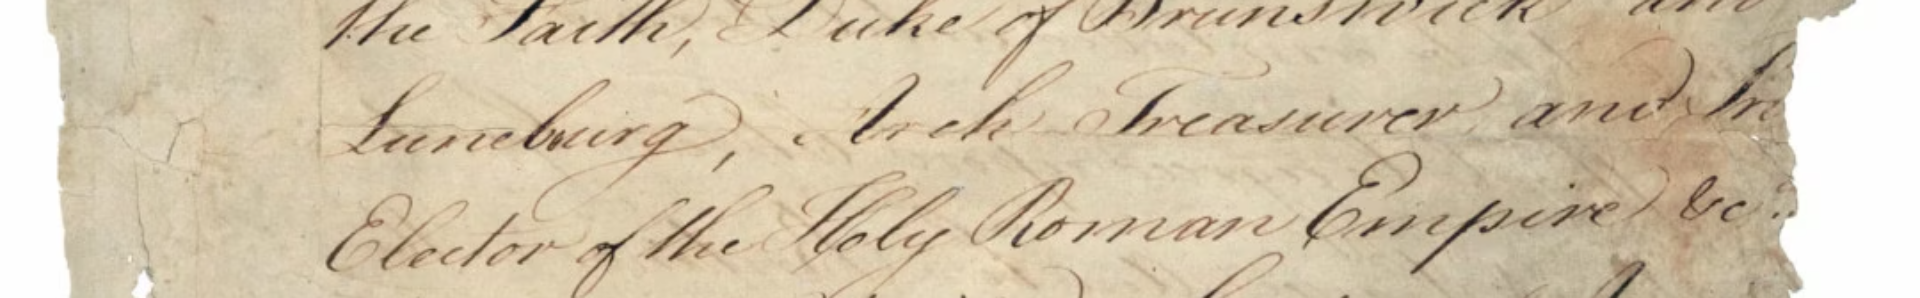 the Faith, Duke of Brunswick and
Luneburg, Arch Treasurer and
Elector of the Holy Roman Empire &c.